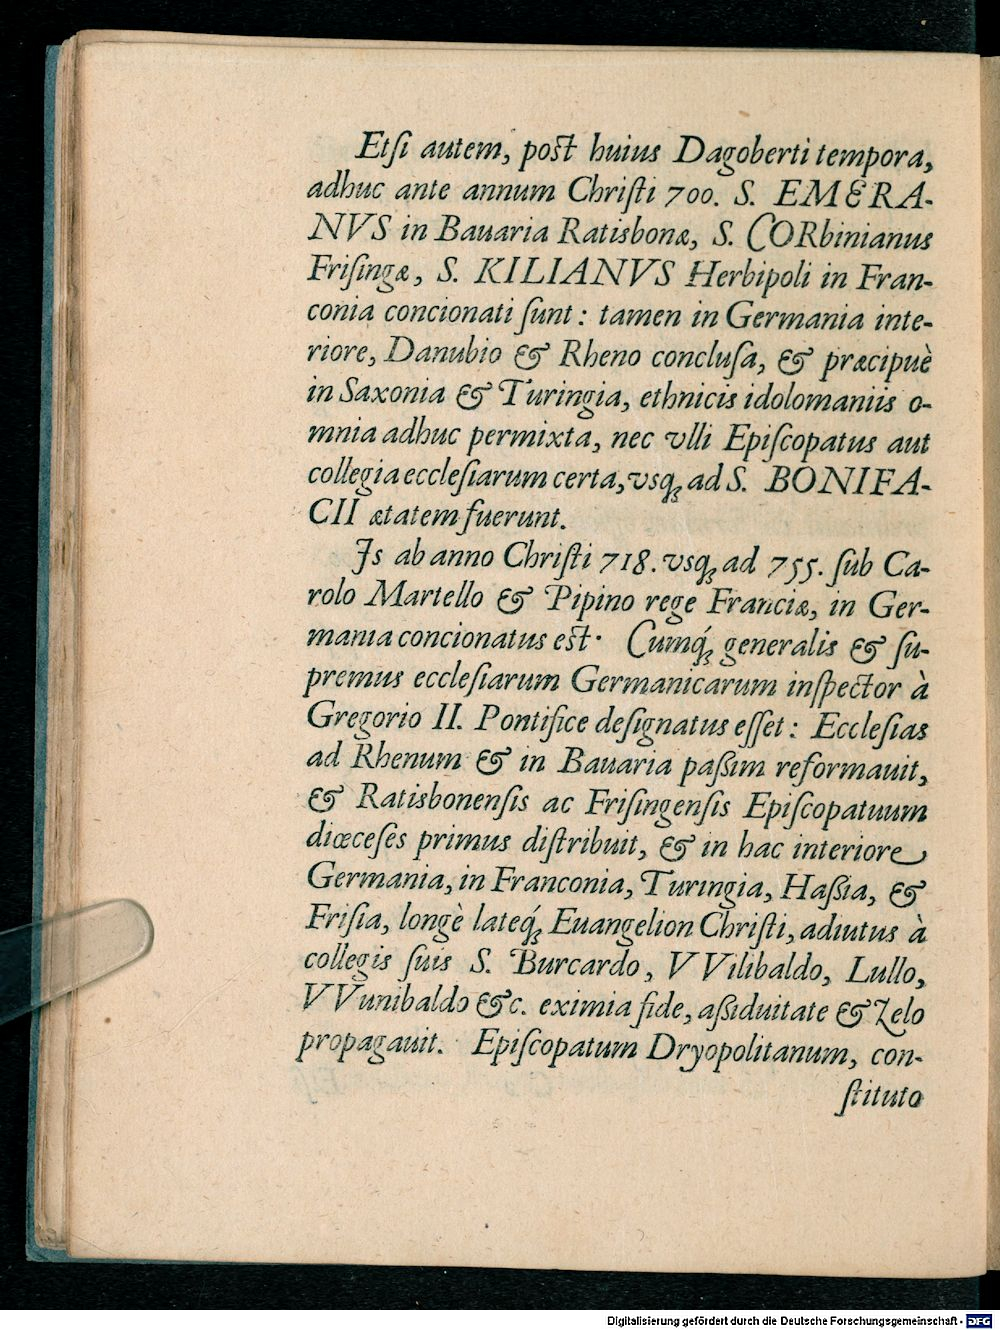 Etſi autem, poſt huius Dagoberti tempora,
adhuc ante annum Chriſti 700. S. EMERA-
NVS in Bauaria Ratisbonæ, S. CORbinianus
Friſingæ, S. KILIANVS Herbipoli in Fran-
conia concionati ſunt: tamen in Germania inte-
riore, Danubio & Rheno concluſa, & præcipuè
in Saxonia & Turingia, ethnicis idolomaniis o-
mnia adhuc permixta, nec vlli Epiſcopatus aut
collegia eccleſiarum certa, vsq́; ad S. BONIFA-
CII ætatem fuerunt.
Is ab anno Chriſti 718. vsq́; ad 755. ſub Ca-
rolo Martello & Pipino rege Franciæ, in Ger-
mania concionatus eſt. Cumq́; generalis & ſu-
premus eccleſiarum Germanicarum inſpector à
Gregorio II. Pontifice deſignatus eſſet: Eccleſias
ad Rhenum & in Bauaria paßim reformauit,
& Ratisbonenſis ac Friſingenſis Epiſcopatuum
diœceſes primus diſtribuit, & in hac interiore
Germania, in Franconia, Turingia, Haßia, &
Friſia, longè lateq́; Euangelion Chriſti, adiutus à
collegis ſuis S. Burcardo, VVilibaldo, Lullo,
VVunibaldo &c. eximia fide, aßiduitate & Zelo
propagauit. Epiſcopatum Dryopolitanum, con-
ſtituto
Digitalisierung gefördert durch die Deutsche Forschungsgemeinschaft - DFG